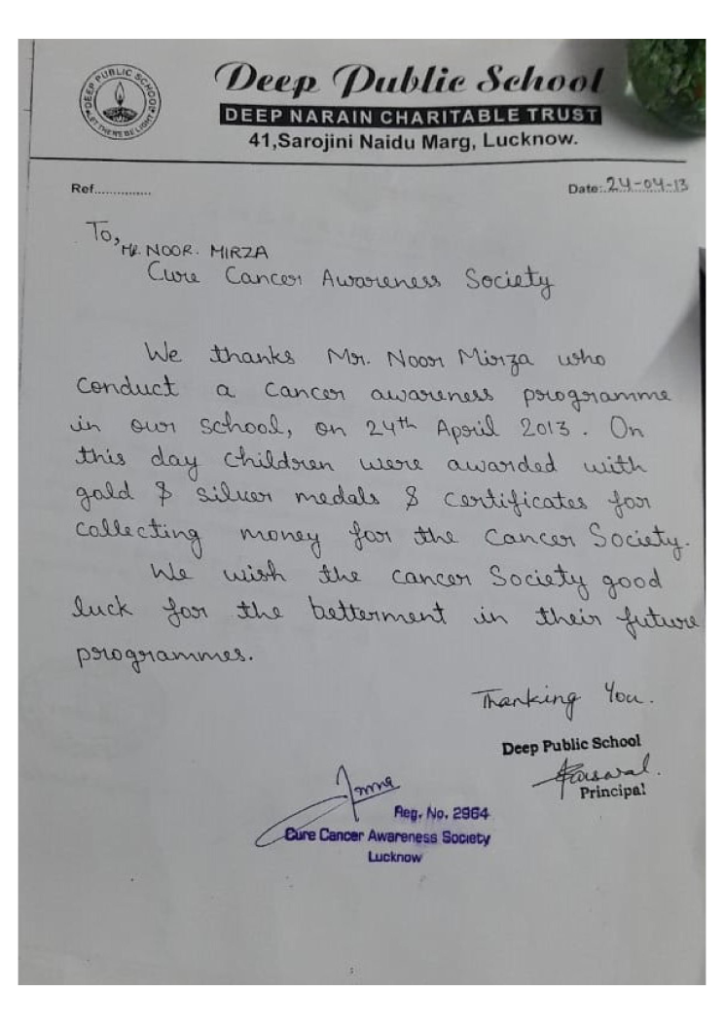 DEEP PUBLIC SCHOOL
LET THERE BE LIGHT
Deep Public School
DEEP NARAIN CHARITABLE TRUST
41,Sarojini Naidu Marg, Lucknow.
Ref.............. Date:.24-04-13
To,
MR. NOOR. MIRZA
Cure Cancer Awareness Society
We thanks Mr. Noor Mirza who
conduct a cancer awareness programme
in our school, on 24th April 2013. On
this day children were awarded with
gold & silver medals & certificates for
collecting money for the Cancer Society.
We wish the cancer Society good
luck for the betterment in their future
programmes.
Thanking You.
Deep Public School
Principal
Reg. No. 2964
Cure Cancer Awareness Society
Lucknow